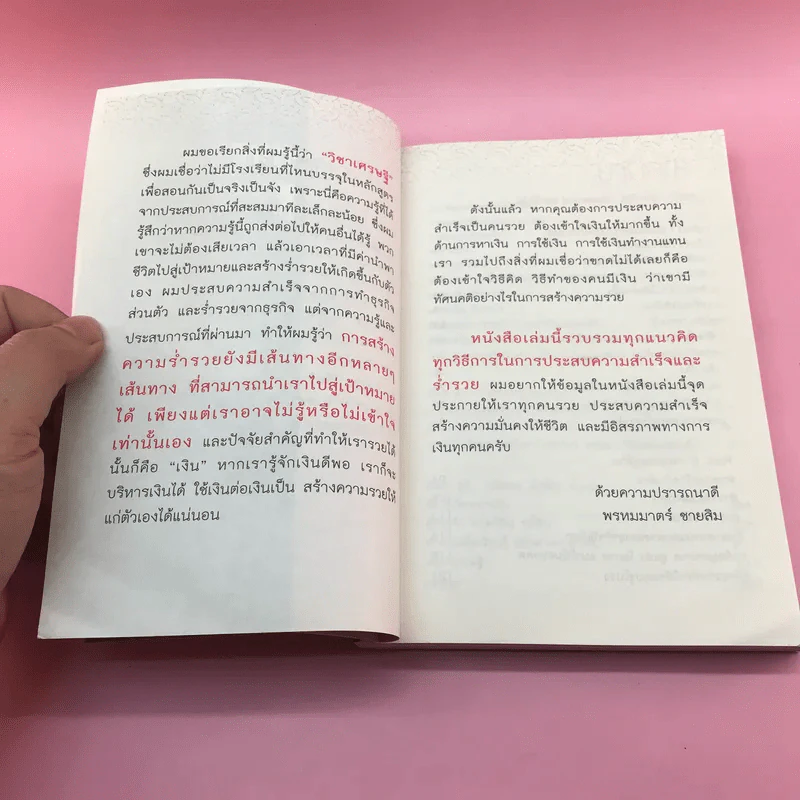 ผมขอเรียกสิ่งที่ผมรู้นี้ว่า “วิชาเศรษฐี”
ซึ่งผมเชื่อว่าไม่มีโรงเรียนที่ไหนบรรจุในหลักสูตร
เพื่อสอนกันเป็นจริงเป็นจัง เพราะนี่คือความรู้ที่ได้
จากประสบการณ์ที่สะสมมาทีละเล็กละน้อย ซึ่งผม
รู้สึกว่าหากความรู้นี้ถูกส่งต่อไปให้คนอื่นได้รู้ พวก
เขาจะไม่ต้องเสียเวลา แล้วเอาเวลาที่มีค่านำพา
ชีวิตไปสู่เป้าหมายและสร้างร่ำรวยให้เกิดขึ้นกับตัว
เอง ผมประสบความสำเร็จจากการทำธุรกิจ
ส่วนตัว และร่ำรวยจากธุรกิจ แต่จากความรู้และ
ประสบการณ์ที่ผ่านมา ทำให้ผมรู้ว่า การสร้าง
ความร่ำรวยยังมีเส้นทางอีกหลายๆ
เส้นทาง ที่สามารถนำเราไปสู่เป้าหมาย
ได้ เพียงแต่เราอาจไม่รู้หรือไม่เข้าใจ
เท่านั้นเอง และปัจจัยสำคัญที่ทำให้เรารวยได้
นั้นก็คือ “เงิน” หากเรารู้จักเงินดีพอ เราก็จะ
บริหารเงินได้ ใช้เงินต่อเงินเป็น สร้างความรวยให้
แก่ตัวเองได้แน่นอน
ดังนั้นแล้ว หากคุณต้องการประสบความ
สำเร็จเป็นคนรวย ต้องเข้าใจเงินให้มากขึ้น ทั้ง
ด้านการหาเงิน การใช้เงิน การใช้เงินทำงานแทน
เรา รวมไปถึงสิ่งที่ผมเชื่อว่าขาดไม่ได้เลยก็คือ
ต้องเข้าใจวิธีคิด วิธีทำของคนมีเงิน ว่าเขามี
ทัศนคติอย่างไรในการสร้างความรวย
หนังสือเล่มนี้รวบรวมทุกแนวคิด
ทุกวิธีการในการประสบความสำเร็จและ
ร่ำรวย ผมอยากให้ข้อมูลในหนังสือเล่มนี้จุด
ประกายให้เราทุกคนรวย ประสบความสำเร็จ
สร้างความมั่นคงให้ชีวิต และมีอิสรภาพทางการ
เงินทุกคนครับ
ด้วยความปรารถนาดี
พรหมมาตร์ ชายสิม